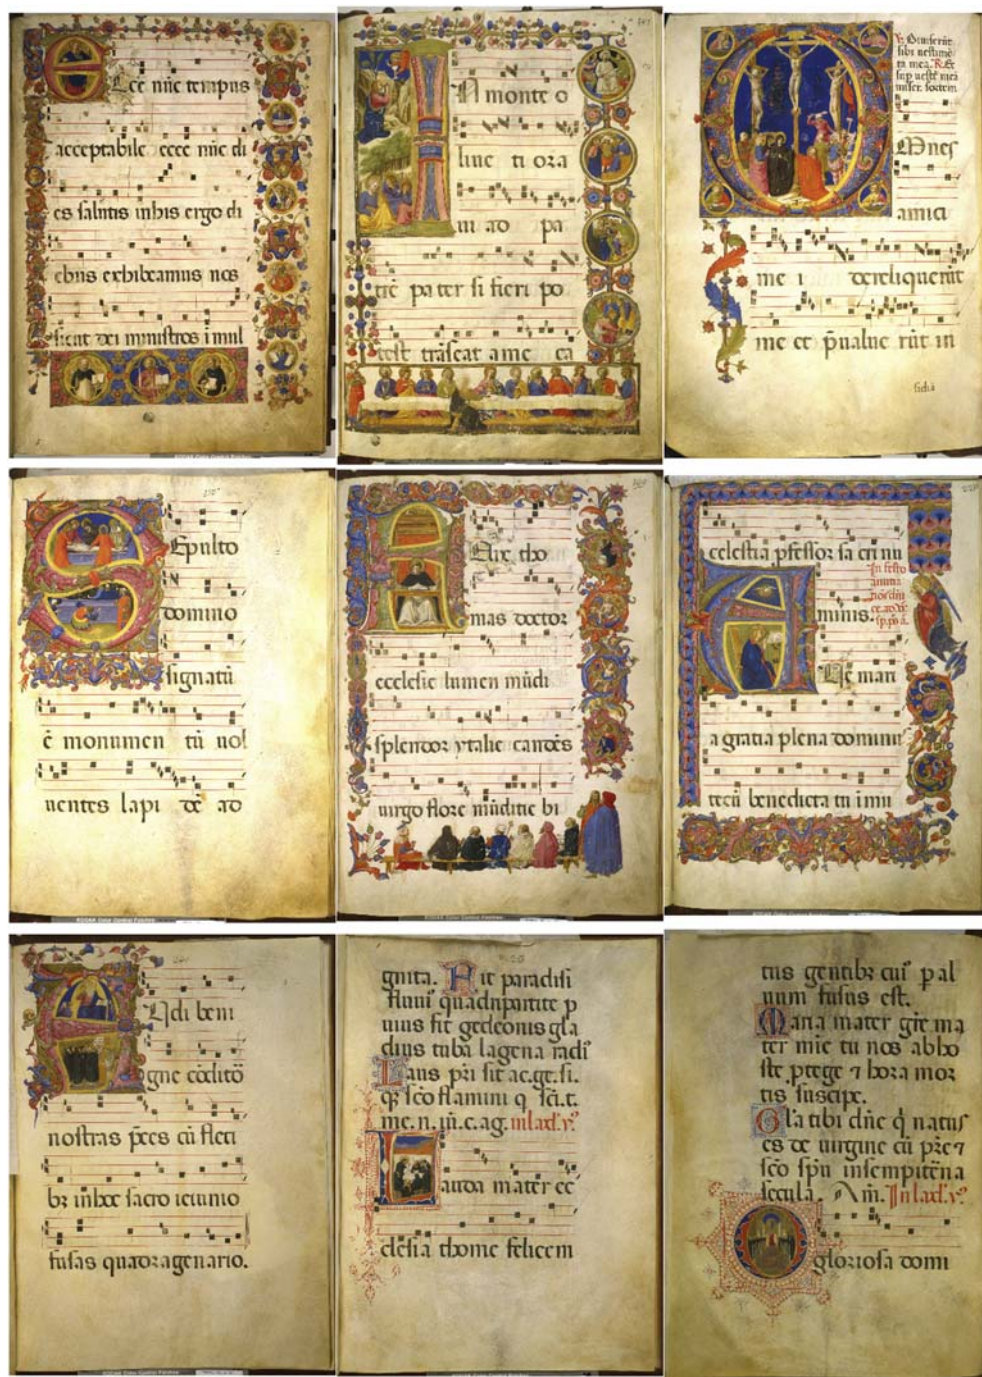 Ecce nũc tempus
acceptabile ecce nũc di
es salutis in his ergo di
ebus exhibeamus nos
sicut dei ministros ĩ mul
IN monte o
liue ti ora
uit ad pa
trẽ pa ter si fieri po
test trãseat a me ca
sibi uestimẽ
ta mea. R. Et
sup ueste meã
Omnes
amici
me i dereliquerũt
me et p̃ualue rũt in
Sepulto
domino
signatũ
ẽ monumen tũ uol
uentes lapi dẽ ad
Felix tho
mas doctor
ecclesie lumen mũdi
splendor ytalie candẽs
uirgo flore mũditie bi
celestia pfessor sa cri nu
In festo
minis.
Aue mari
a gratia plena dominu
tecũ benedicta tu ĩ mu
Audi beni
gne cõditõ
nostras p̃ces cũ fleti
bz in hoc sacro ieiunio
fusas quadragenario.
gnita. Hic paradisi
fluui quadripartite p
uius fit gedeonis gla
dius tuba lagena radi
Laus pri sit ac.gt.si.
flamini q
me.n.
Lauda mater ec
clesia thome felicem
tus gentibz cui pal
uum fusus est.
Maria mater grẽ ma
ter mĩe tu nos ab ho
ste ptege 7 hora mor
tis suscipe.
Gl'a tibi dñe q̇ natus
es de uirgine cũ pr̃e 7
sc̃o spũ in sempitẽna
secula. Am̃. In laud'. ỹ
O gloriosa domi